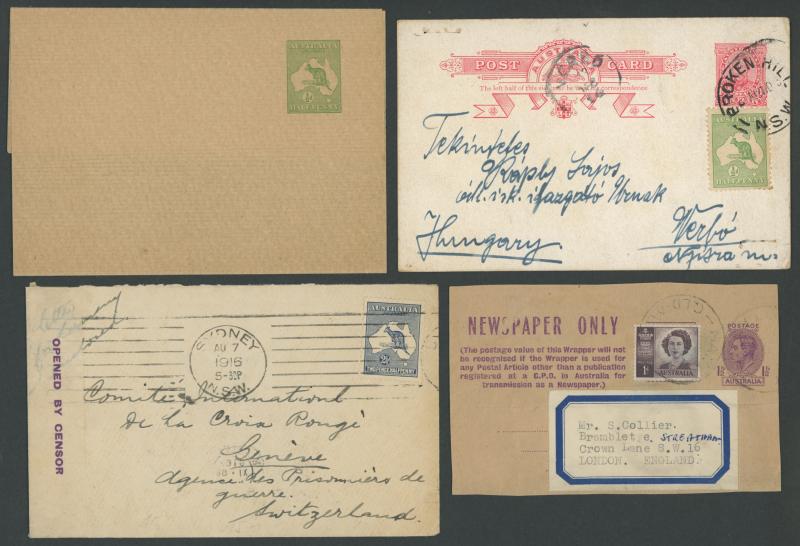 AUSTRALIA
½
HALFPENNY
POST AUSTRALIA CARD
The left half of this side may be used for correspondence
BROKEN HILL
N.S.W
AUSTRALIA
½
HALFPENNY
Tekintetes
Ráply Lajos
áll. isk. igazgató Úrnak
Verbó
Hungary.
Nyitra m.
OPENED BY CENSOR
SYDNEY
AU 7
1916
5-30P
N.S.W.
AUSTRALIA
2½
TWOPENCE HALFPENNY
Comité International
De la Croix Rouge
Genève
Agence des Prisonniers de
guerre.
Switzerland.
NEWSPAPER ONLY
(The postage value of this Wrapper will not
be recognised if the Wrapper is used for
any Postal Article other than a publication
registered at a G.P.O. in Australia for
transmission as a Newspaper.)
1D
AUSTRALIA
POSTAGE
1½D 1½D
AUSTRALIA
Mr. S.Collier.
Bramblet e, STREATHAM
Crown Lane S.W.16
LONDON. ENGLAND.